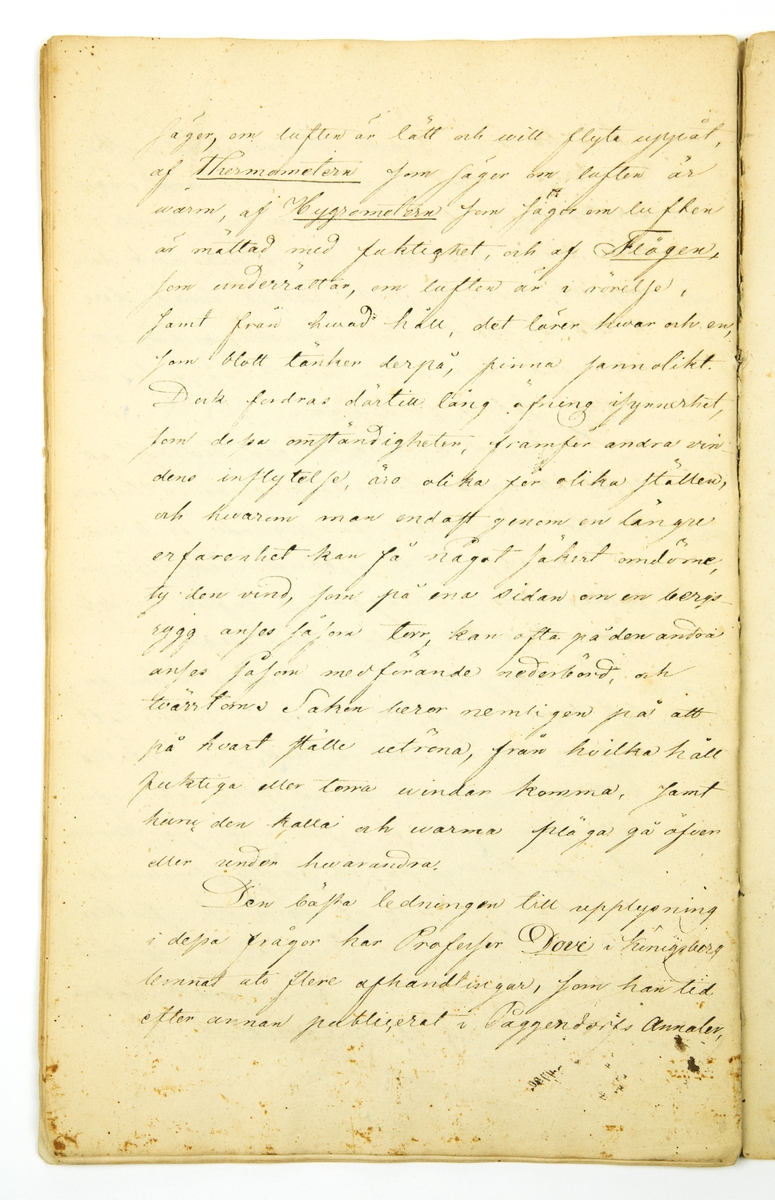 säger, om luften är lätt och will flyta uppåt,
af Thermometern som säger om luften är
warm, af Hygrometern som säger om luften
är mättad med fuktighet, och af Flögen,
som underrättar, om luften är i rörelse,
samt från hwad håll, det lärer hwar och en,
som blott tänker derpå, finna sannolikt.
Dock fordras därtill lång öfning isynnerhet,
som dessa omständigheter, framför andra vin-
dens inflytelse, äro olika för olika ställen,
och hwarom man endast genom en längre
erfarenhet kan få något säkert omdöme,
ty den vind, som på ena sidan om en bergs-
rygg anses såsom torr, kan ofta på den andra
anses såsom medförande nederbörd, och
tvärtom. Saken beror nemligen på att
på hvart ställe utröna, från hvilka håll
fuktiga eller torra windar komma, samt
huru den kalla och warma pläga gå öfver
eller under hwarandra.
Den bästa ledningen till upplysning
i dessa frågor har Professor Dove i Königsberg
lemnat uti flere afhandlingar, som han tid
efter annan publicerat i Poggendorfs Annaler,